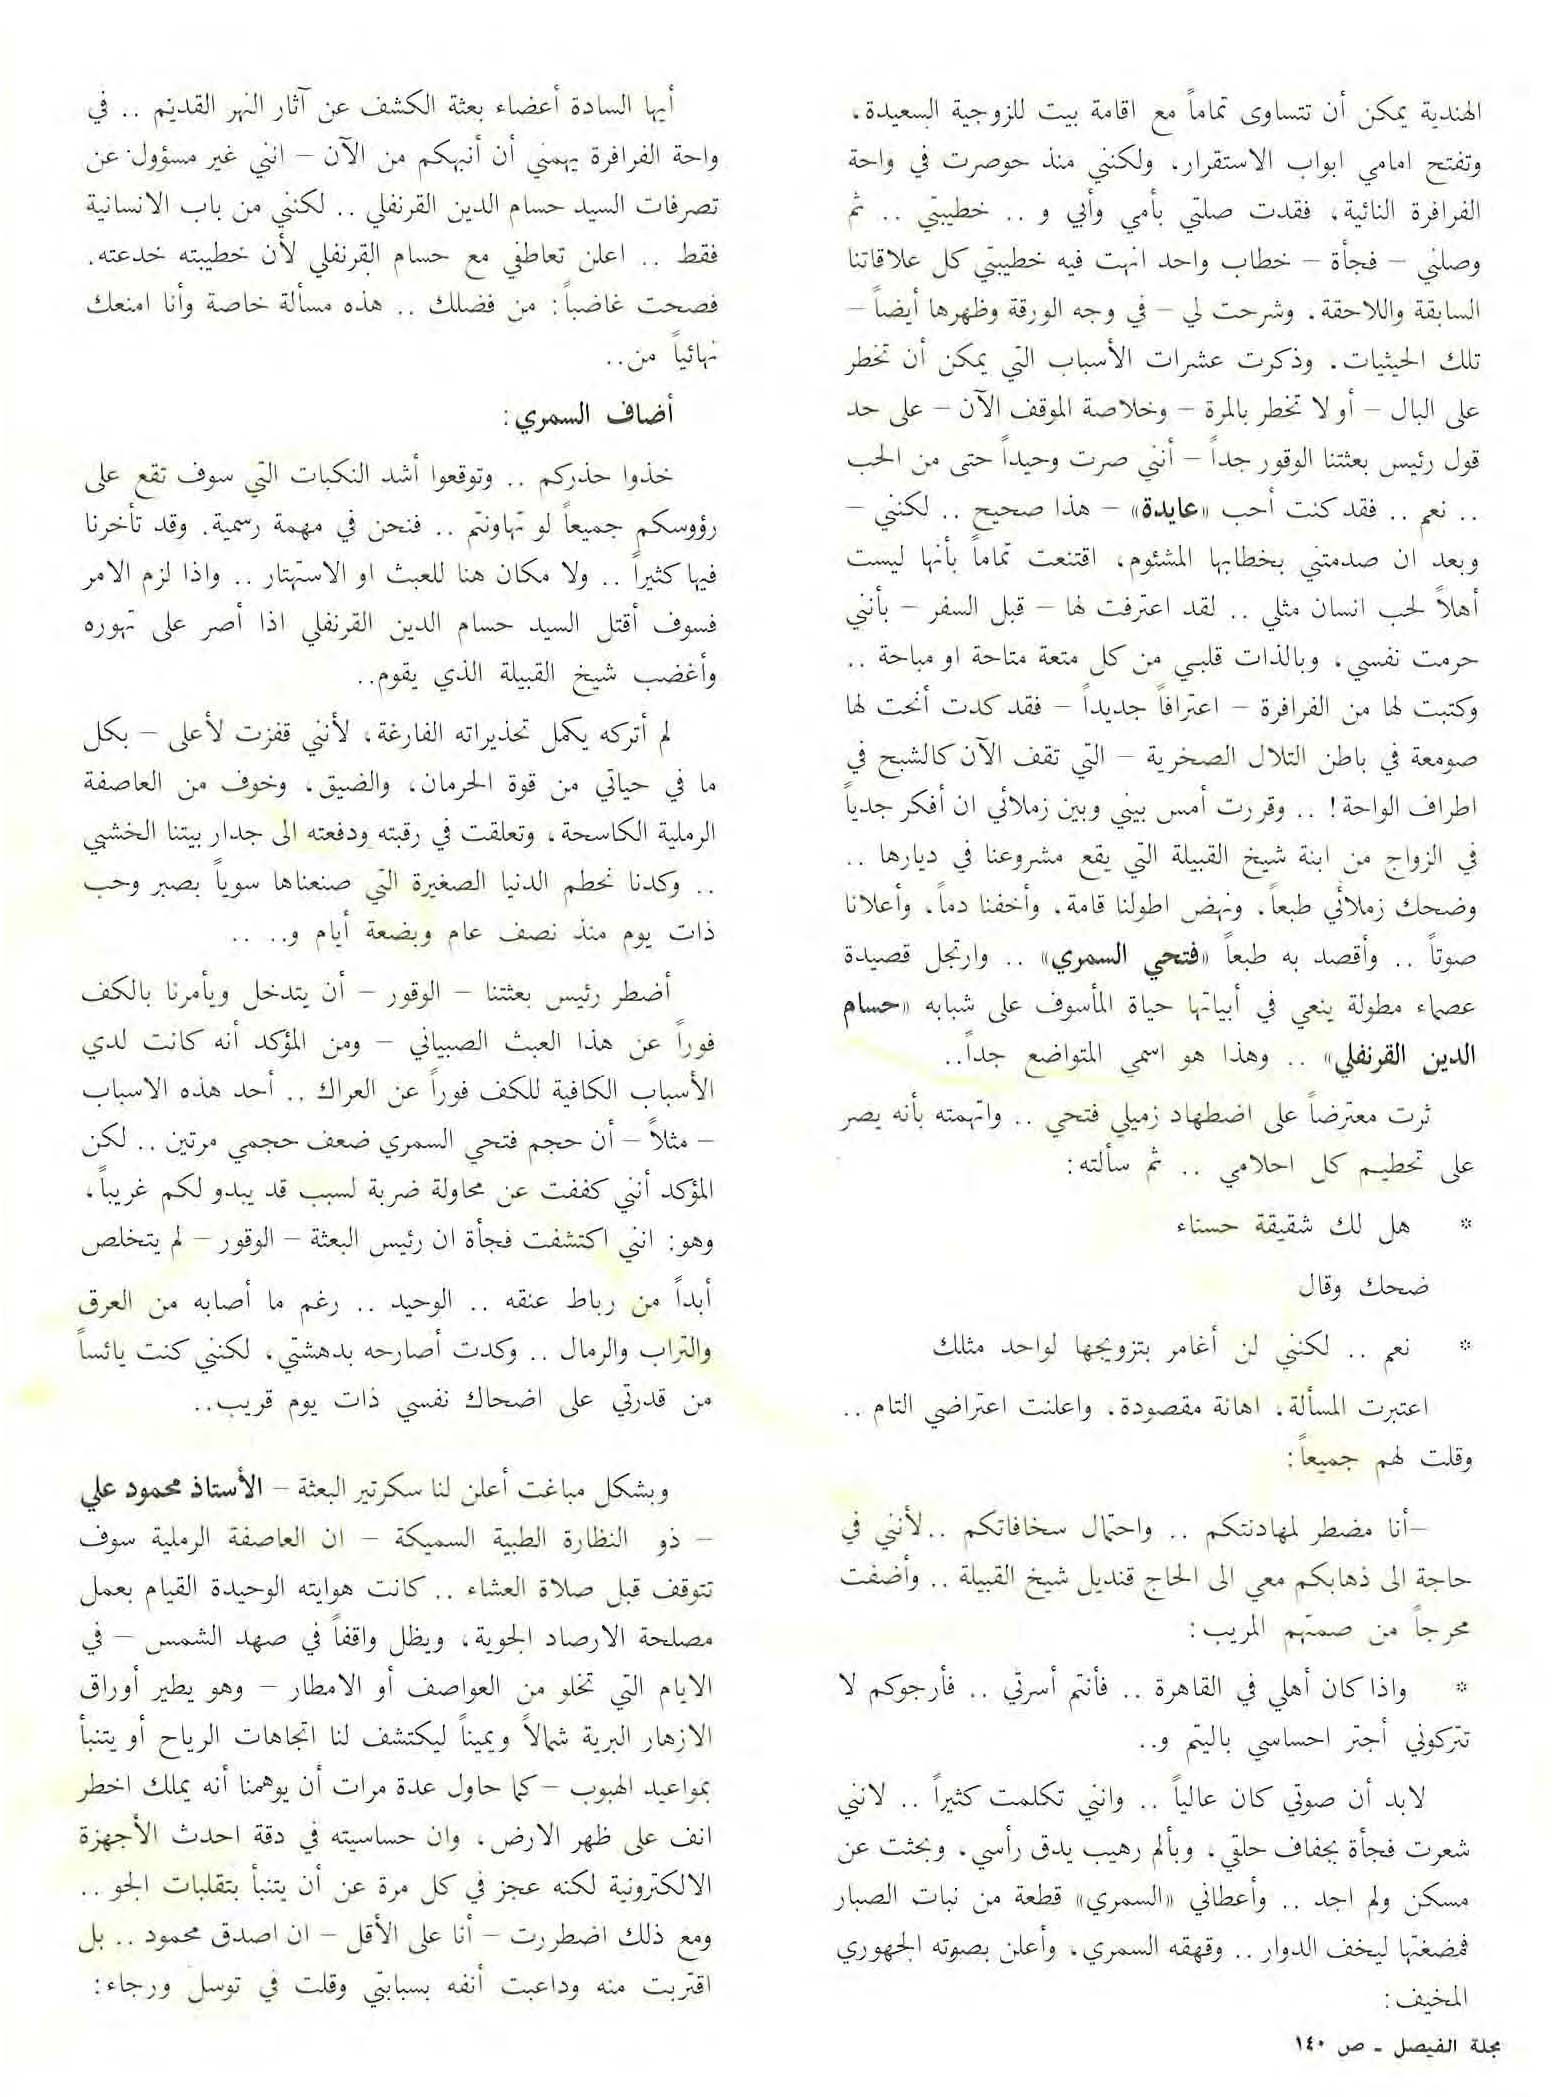 الهندية يمكن أن تتساوى تماماً مع اقامة بيت للزوجية السعيدة،
وتفتح امامي ابواب الاستقرار، ولكنني منذ حوصرت في واحة
الفرافرة النائية، فقدت صلتي بأمي وأبي و .. خطيبتي .. ثم
وصلني – فجأة – خطاب واحد انهت فيه خطيبتي كل علاقاتنا
السابقة واللاحقة. وشرحت لي – في وجه الورقة وظهرها أيضاً –
تلك الحيثيات. وذكرت عشرات الأسباب التي يمكن أن تخطر
على البال – أو لا تخطر بالمرة – وخلاصة الموقف الآن – على حد
قول رئيس بعثتنا الوقور جداً – أنني صرت وحيداً حتى من الحب
.. نعم .. فقد كنت أحب «عايدة» – هذا صحيح .. لكنني –
وبعد ان صدمتني بخطابها المشئوم، اقتنعت تماماً بأنها ليست
أهلاً لحب انسان مثلي .. لقد اعترفت لها – قبل السفر – بأنني
حرمت نفسي، وبالذات قلبي من كل متعة متاحة او مباحة ..
وكتبت لها من الفرافرة – اعترافاً جديداً – فقد كدت أنحت لها
صومعة في باطن التلال الصخرية – التي تقف الآن كالشبح في
اطراف الواحة! .. وقررت أمس بيني وبين زملائي ان أفكر جدياً
في الزواج من ابنة شيخ القبيلة التي يقع مشروعنا في ديارها ..
وضحك زملائي طبعاً، ونهض اطولنا قامة، وأخفنا دماً، وأعلانا
صوتاً .. وأقصد به طبعاً «فتحي السمري» .. وارتجل قصيدة
عصماء مطولة ينعي في أبياتها حياة المأسوف على شبابه «حسام
الدين القرنفلي» .. وهذا هو اسمي المتواضع جداً..
ثرت معترضاً على اضطهاد زميلي فتحي .. واتهمته بأنه يصر
على تحطيم كل احلامي .. ثم سألته:
* هل لك شقيقة حسناء
ضحك وقال
* نعم .. لكنني لن أغامر بتزويجها لواحد مثلك
اعتبرت المسألة، اهانة مقصودة، واعلنت اعتراضي التام ..
وقلت لهم جميعاً:
–أنا مضطر لمهادنتكم .. واحتمال سخافاتكم ..لأنني في
حاجة الى ذهابكم معي الى الحاج قنديل شيخ القبيلة .. وأضفت
محرجاً من صمتهم المريب:
* واذا كان أهلي في القاهرة .. فأنتم أسرتي .. فأرجوكم لا
تتركوني أجتر احساسي باليتم و..
لابد أن صوتي كان عالياً .. وانني تكلمت كثيراً .. لانني
شعرت فجأة بجفاف حلقي، وبألم رهيب يدق رأسي، وبحثت عن
مسكن ولم اجد .. وأعطاني «السمري» قطعة من نبات الصبار
فمضغتها ليخف الدوار .. وقهقه السمري، وأعلن بصوته الجهوري
المخيف:
أيها السادة أعضاء بعثة الكشف عن آثار النهر القديم .. في
واحة الفرافرة يهمني أن أنبهكم من الآن – انني غير مسؤول عن
تصرفات السيد حسام الدين القرنفلي .. لكنني من باب الانسانية
فقط .. اعلن تعاطفي مع حسام القرنفلي لأن خطيبته خدعته.
فصحت غاضباً: من فضلك .. هذه مسألة خاصة وأنا امنعك
نهائياً من..
أضاف السمري:
خذوا حذركم .. وتوقعوا أشد النكبات التي سوف تقع على
رؤوسكم جميعاً لو تهاونتم .. فنحن في مهمة رسمية. وقد تأخرنا
فيها كثيراً .. ولا مكان هنا للعبث او الاستهتار .. واذا لزم الامر
فسوف أقتل السيد حسام الدين القرنفلي اذا أصر على تهوره
وأغضب شيخ القبيلة الذي يقوم..
لم أتركه يكمل تحذيراته الفارغة، لأنني قفزت لأعلى – بكل
ما في حياتي من قوة الحرمان، والضيق، وخوف من العاصفة
الرملية الكاسحة، وتعلقت في رقبته ودفعته الى جدار بيتنا الخشبي
.. وكدنا نحطم الدنيا الصغيرة التي صنعناها سوياً بصبر وحب
ذات يوم منذ نصف عام وبضعة أيام و.. ..
أضطر رئيس بعثتنا – الوقور – أن يتدخل ويأمرنا بالكف
فوراً عن هذا العبث الصبياني – ومن المؤكد أنه كانت لدي
الأسباب الكافية للكف فوراً عن العراك .. أحد هذه الاسباب
– مثلاً – أن حجم فتحي السمري ضعف حجمي مرتين .. لكن
المؤكد أنني كففت عن محاولة ضربة لسبب قد يبدو لكم غريباً،
وهو: انني اكتشفت فجأة ان رئيس البعثة – الوقور – لم يتخلص
أبداً من رباط عنقه .. الوحيد .. رغم ما أصابه من العرق
والتراب والرمال .. وكدت أصارحه بدهشتي، لكنني كنت يائساً
من قدرتي على اضحاك نفسي ذات يوم قريب..
وبشكل مباغت أعلن لنا سكرتير البعثة – الأستاذ محمود علي
– ذو النظارة الطبية السميكة – ان العاصفة الرملية سوف
تتوقف قبل صلاة العشاء .. كانت هوايته الوحيدة القيام بعمل
مصلحة الارصاد الجوية، ويظل واقفاً في صهد الشمس – في
الايام التي تخلو من العواصف أو الامطار – وهو يطير أوراق
الازهار البرية شمالاً ويميناً ليكتشف لنا اتجاهات الرياح أو يتنبأ
بمواعيد الهبوب – كما حاول عدة مرات أن يوهمنا أنه يملك اخطر
انف على ظهر الارض، وان حساسيته في دقة احدث الأجهزة
الالكترونية لكنه عجز في كل مرة عن أن يتنبأ بتقلبات الجو ..
ومع ذلك اضطررت – أنا على الأقل – ان اصدق محمود .. بل
اقتربت منه وداعبت أنفه بسبابتي وقلت في توسل ورجاء:
مجلة الفيصل - ص ١٤٠